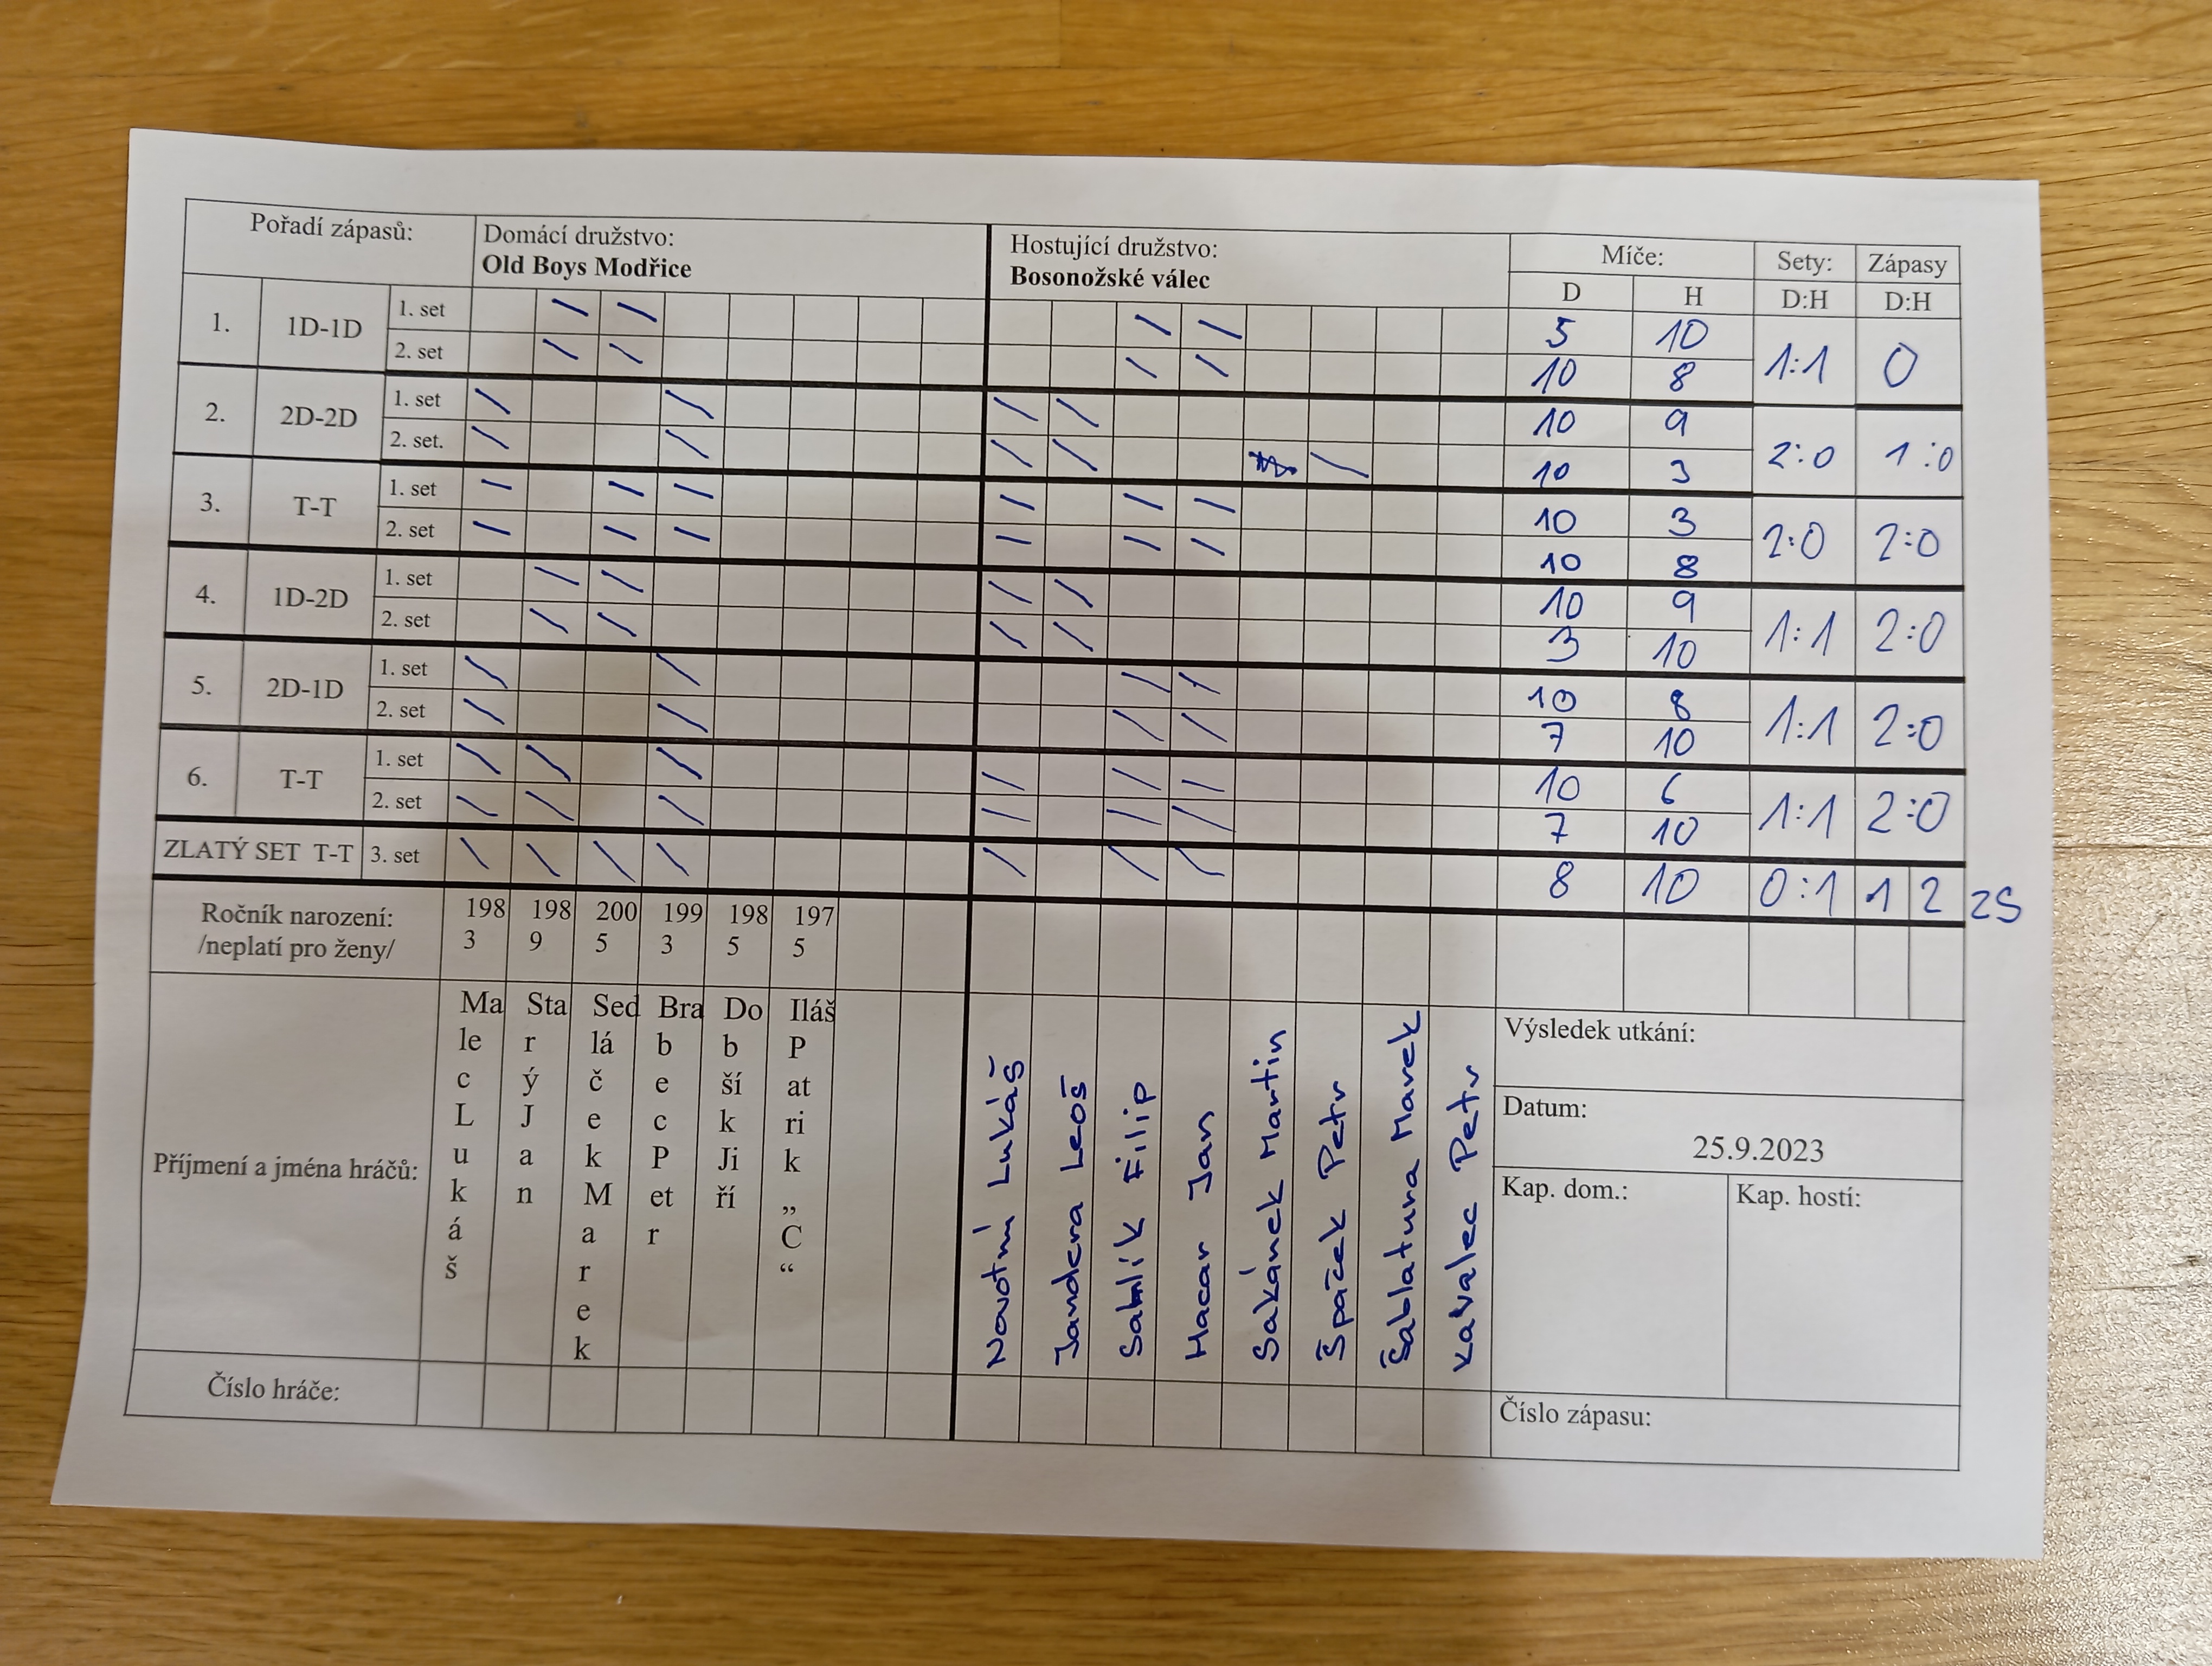 Pořadí zápasů: Domácí družstvo: Hostující družstvo: Míče: Sety: Zápasy
Old Boys Modřice Bosonožské válec D H D:H D:H
1. 1D-1D 1. set 5 10 1:1 0
2. set 10 8
2. 2D-2D 1. set 10 9 2:0 1:0
2. set. 10 3
3. T-T 1. set 10 3 2:0 2:0
2. set 10 8
4. 1D-2D 1. set 10 9 1:1 2:0
2. set 3 10
5. 2D-1D 1. set 10 8 1:1 2:0
2. set 7 10
6. T-T 1. set 10 6 1:1 2:0
2. set 7 10
ZLATÝ SET T-T 3. set 8 10 0:1 1 2 ZS
Ročník narození: 1983 1989 2005 1993 1985 1975
/neplatí pro ženy/
Příjmení a jména hráčů:
Malec Lukáš
Starý Jan
Sedláček Marek
Brabec Petr
Dobšík Jiří
Iláš Patrik „C“
Novotní Lukáš
Jandera Leoš
Filip
Macar Jan
Sakánek Martin
Špaček Petr
Šablatura Marek
Kavalec Petr
Výsledek utkání:
Datum:
25.9.2023
Kap. dom.: Kap. hostí:
Číslo hráče:
Číslo zápasu: